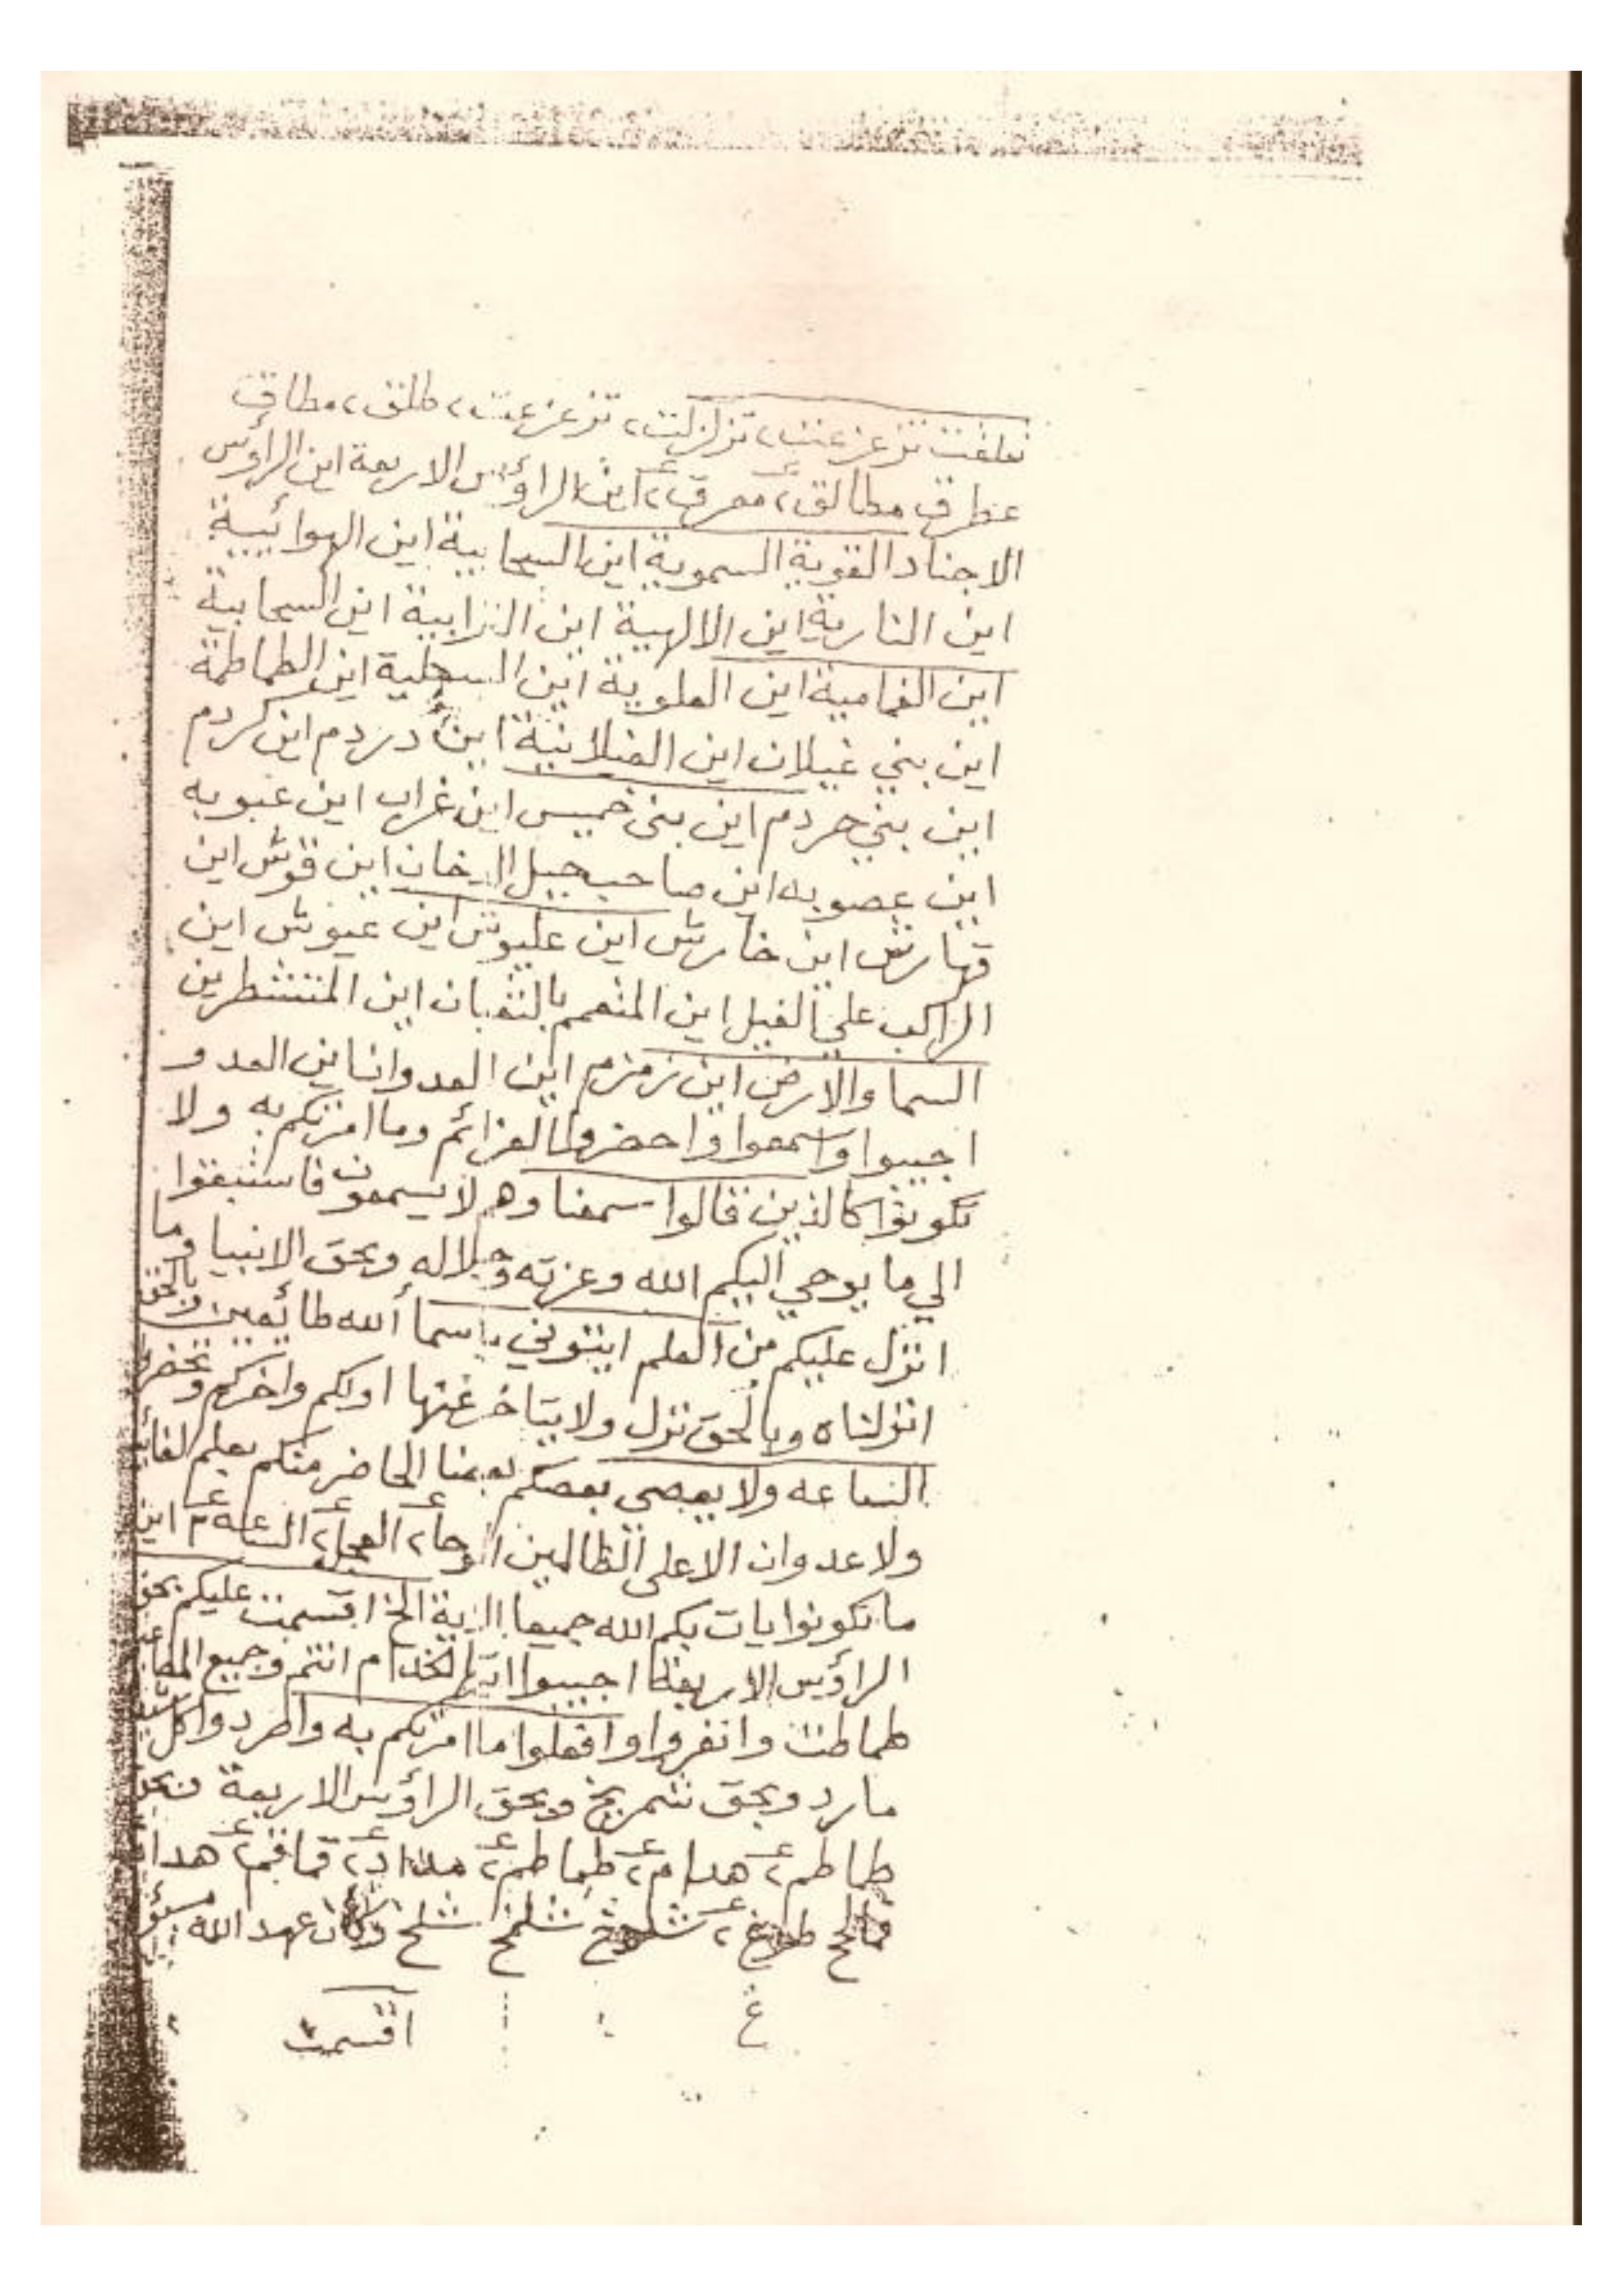 تزعزعت، تزلزلت، تزعزعت، طلق، مطاق
مطالق، اين الراؤس الاربعة اين الراؤس
الاجناد القوية السموية اين السحابية اين الهوائيية
اين النارية اين الالهية اين الترابية اين السحابية
اين الغمامية اين العلوية اين السجلية اين الطماطمة
اين بني غيلان اين الغيلانية اين دردم اين كردم
اين بني حردم اين بني خميس اين غراب اين عبويه
اين عصويه اين صاحب جبل الدخان اين قوش اين
قهارش اين خارش اين عليوش اين عيوش اين
الراكب علي الفيل اين المتعمم بالثعبان اين المنتشطرين
السما والارض اين زمزم اين العدوانا اين العدو
اجيبوا واسمعوا واحضروا العزائم وما امرتكم به ولا
تكونوا كالذين قالوا سمعنا وهم لا يسمعون فاستبقوا
الي ما يوحي اليكم الله وعزته وجلاله وبحق الانبيا وما
انزل عليكم من العلم ايتوني باسما الله طائعين بالحق
انزلناه وبالحق نزل ولا يتاخر عنها اولكم واخركم
الساعه ولا يعصي بعضكم بعضا الحاضر منكم يعلم
ولا عدوان الا علي الظالمين الوحا، العجل، الساعه اين
ما تكونوا يات بكم الله جميعا الاية الخ اقسمت عليكم بحق
الراؤس الاربعة اجيبوا الخدام انتم وجميع
طماطت وانفروا وافعلوا ما امرتكم به واطردوا كل
مارد وبحق شمريخ وبحق الراؤس الاربعة
طماطم، هدام، طماطم، قماقم،
شلمخ شلخ وكان عهد الله
اقسمت